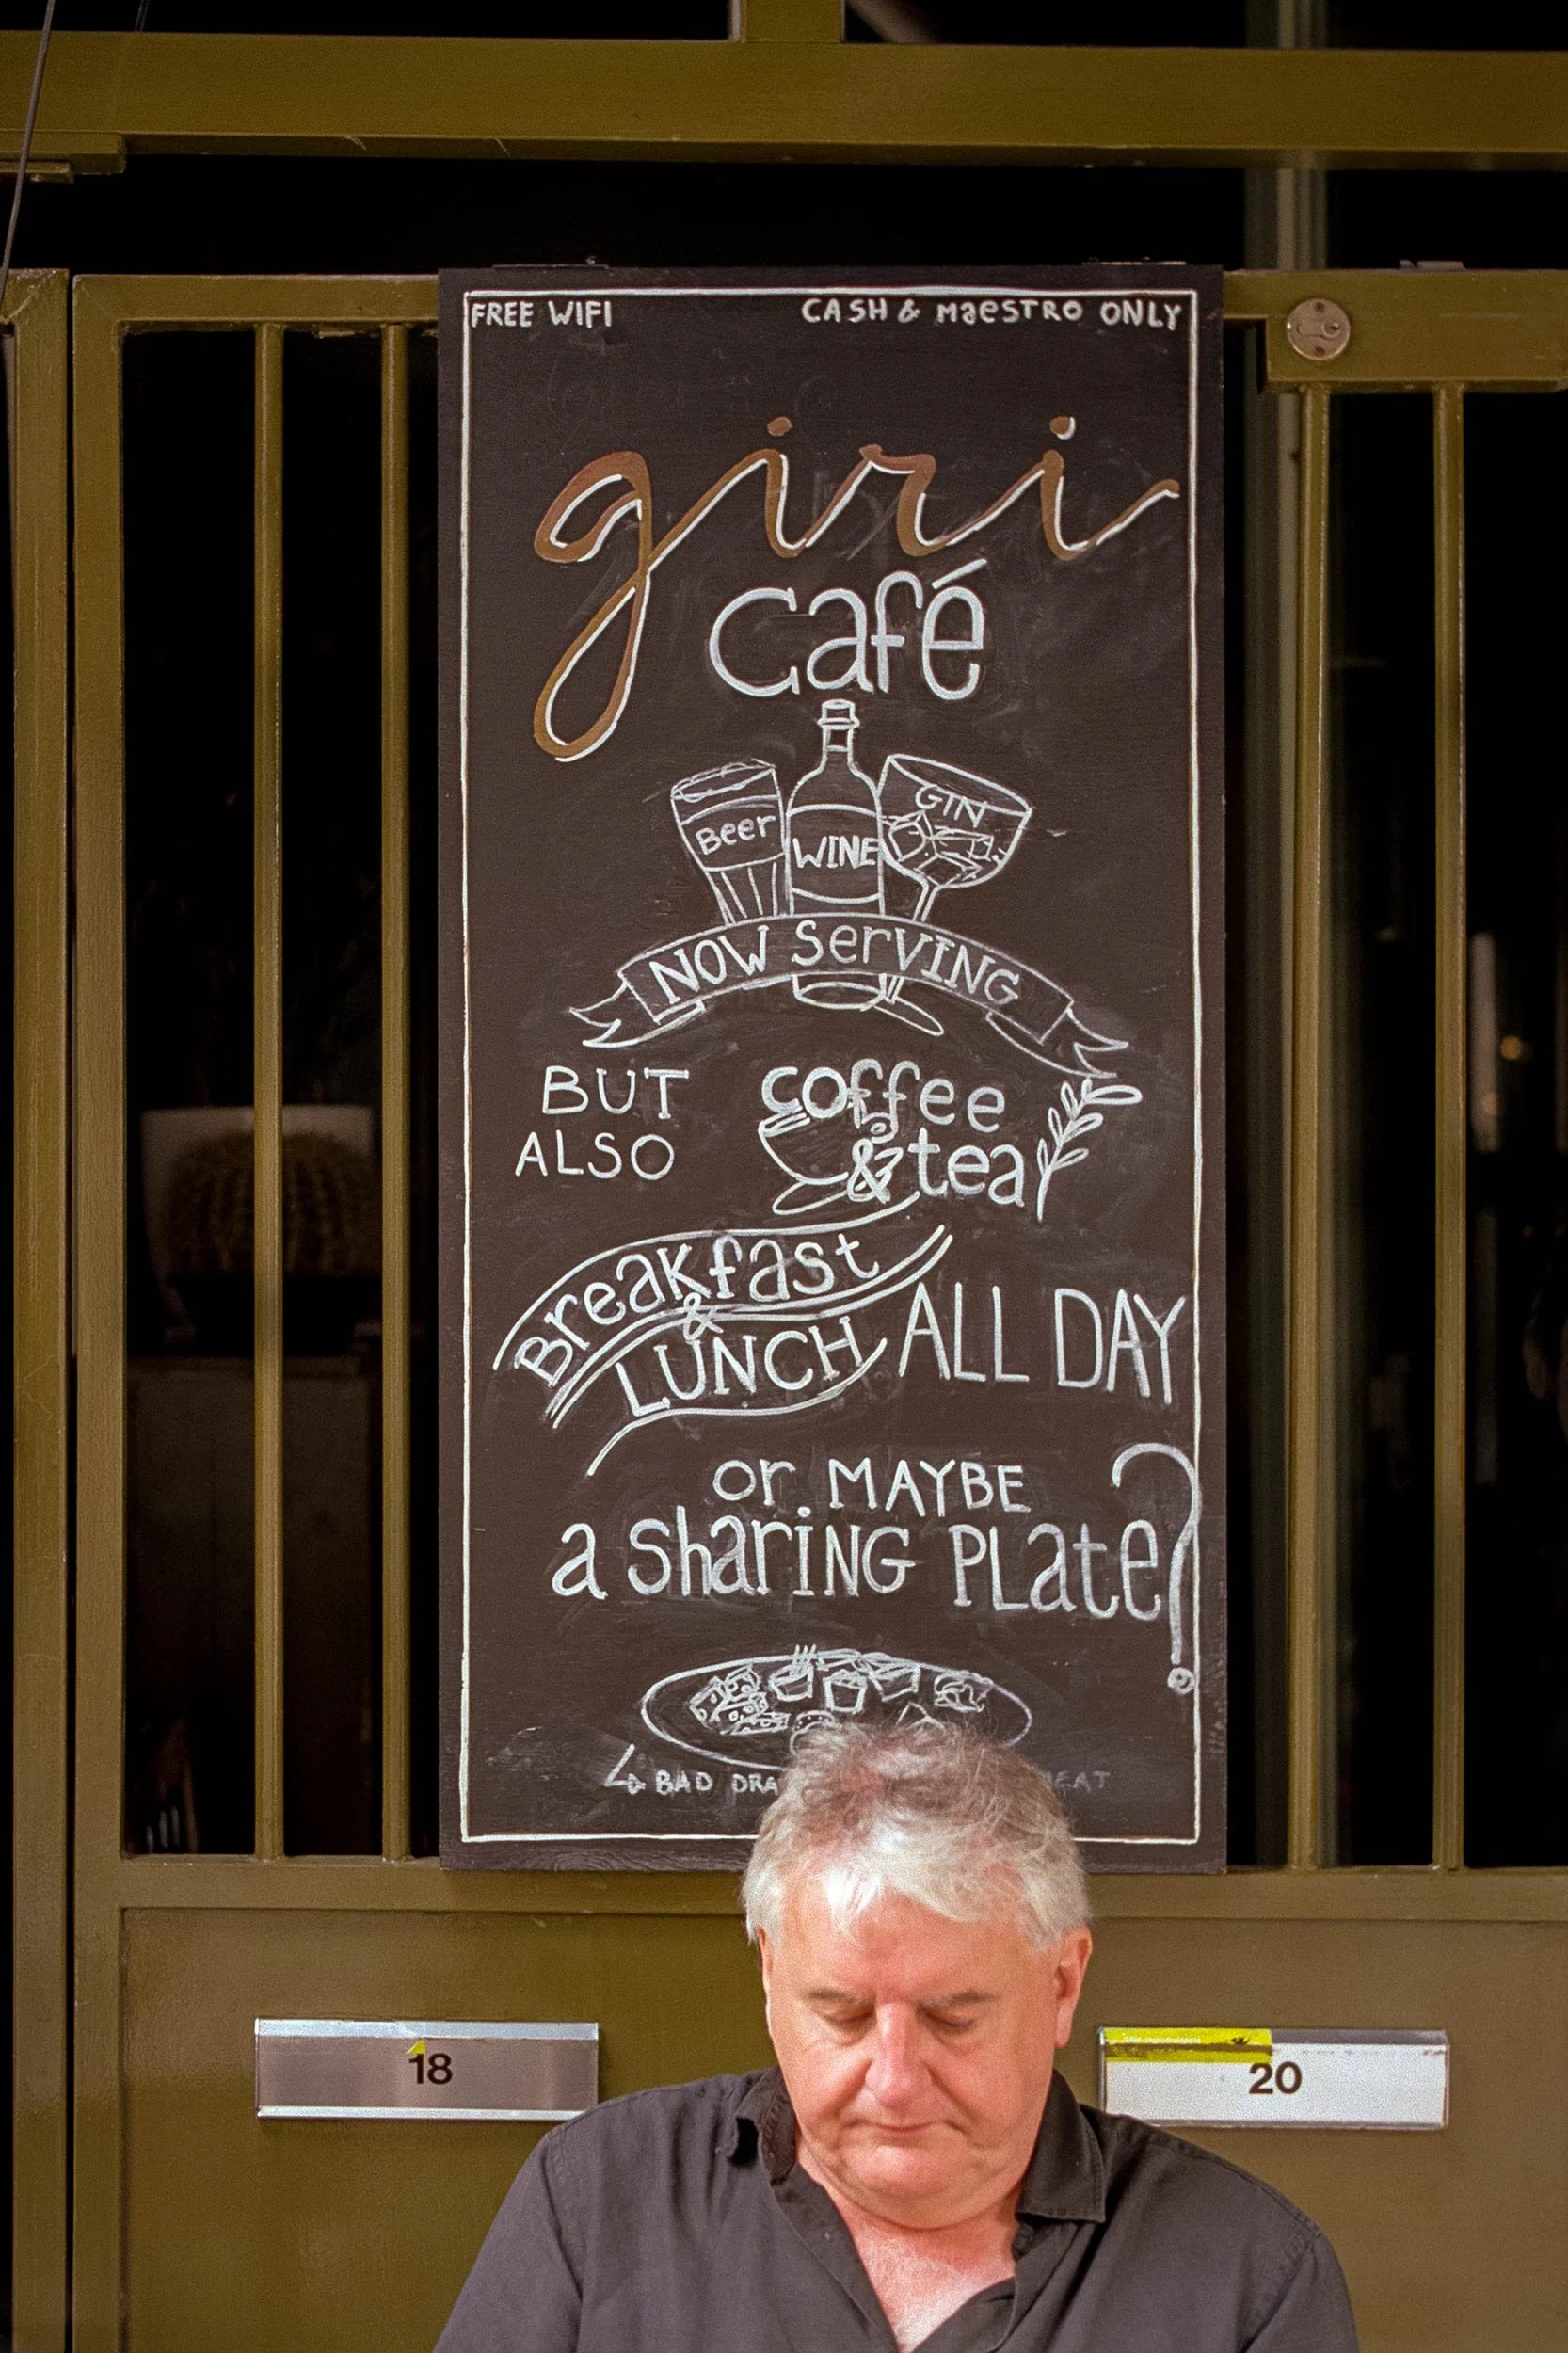 FREE WIFI
CASH & MaeSTRO ONLY
giri
café
Beer
WINE
GIN
NOW SerVING
BUT ALSO
coffee
& tea
Breakfast
&
LUNCH
ALL DAY
or MAYBE
a sharING PLate?
BAD
18
20